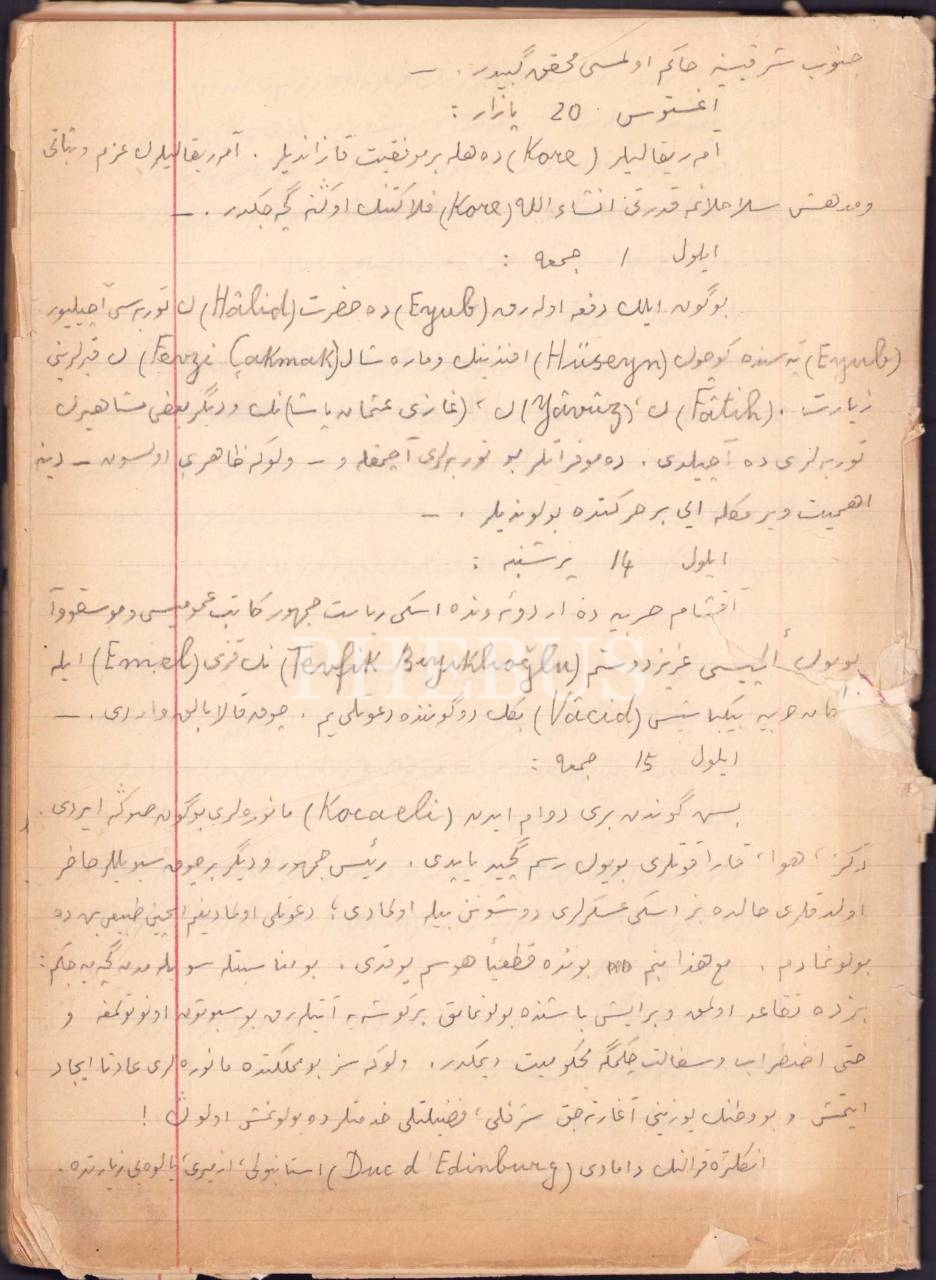 جنوب شرقيسنه حاكم اولمسى محقق گبيدر. —
آغستوس 20 پازار :
آمريقاليلر (Kore) ده هله بر موفقيت قازانديلر. آمريقاليلرك عزم و ثباتى
ومدهش سلاحلانمه قدرتى انشاء الله (Kore) فلاكتنك اوڭنه گچه‌جكدر. —
ايلول 1 جمعه :
بوگون ايلك دفعه اوله‌رق (Eyub) ده حضرت (Hâlid) ك تربه‌سى آچيليور
(Eyub) تپه‌سنده كوچوك (Hüseyn) افندينك وماره‌شال (Fevzi Çakmak) ك قبرلرينى
زيارت. (Fâtih) ك، (Yâvûz) ك، (غازى عثمان پاشا) نك و ديگر بعضى مشاهيرك
توربه‌لرى ده آچيلدى. ده‌موقراتلر بو توربه‌لرى آچمقله و — ولوكه ظاهرى اولسون — دينه
اهميت ويرمكله ايى بر حركتده بولونديلر. —
ايلول 14 پرشنبه :
آقشام حربيه ده اردو ئه‌ونده اسكى رياست جمهور كاتب عموميسى و موسقووا
بويوك ئه‌لچيسى عزيز دوستم (Tevfik Bıyıklıoğlu) نك قزى (Emel) ايله
حربيه بيكباشيسى (Vâcid) بگك دوگوننده دعوتلى‌يم. چوق قالابالق واردى. —
ايلول 15 جمعه :
بش گوندن برى دوام ايدن (Kocaeli) مانوره‌لرى بوگون صوڭه ايردى.
دڭز، هوا، قارا قوتلرى بويوك رسم گچيد ياپدى. رئيس جمهور و ديگر بر چوق سيويللر حاضر
اولدقلرى حالده بز اسكى عسكرلرى دوشونن بيله اولمادى؛ دعوتلى اولماديغم ايچين طبيعى بن ده
بولونمادم. مع هذا بنم بوڭده قطعياً هوسم يوقدى. بو مناسبتله سويله‌مدن گچميه‌جكم:
بزده تقاعد اولمق و بر ايشى باشنده بولونمامق بر كوشه‌يه آتيله‌رق بوسبوتون اونوتولمغه و
حتى اضطراب و سفالت چكمگه محكوميت ديمكدر. ولوكه سز بو مملكتده مانوره‌لرى عادتا ايجاد
ايتمش و بو وطنك يوزينى آغارته‌جق شرفلى، فضيلتلى خدمتلرده بولونمش اولوڭ !
انكلتره قرالنك دامادى (Duc d'Edinburg) استانبولى، ازميرى، يالوه‌يى زيارتده.
PHEBUS